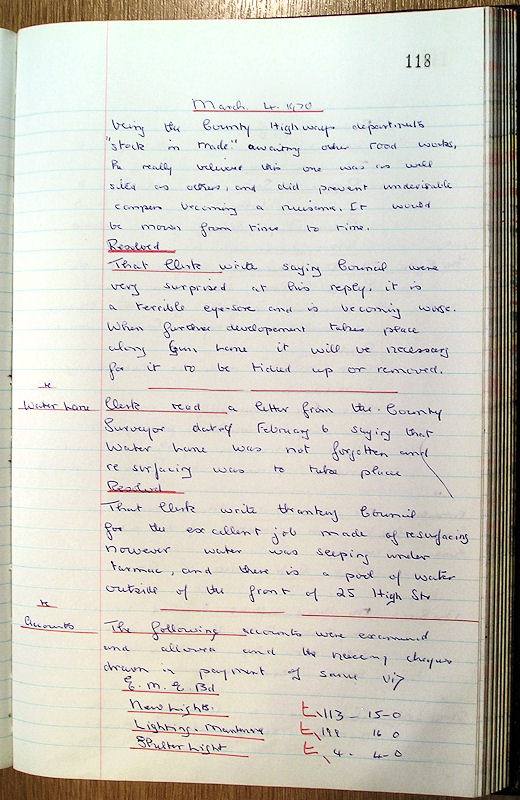 118
March 4. 1970
being the County Highways departments
"stock in made" awaiting other road works,
he really believe this one was as well
sited as others, and did prevent undesirable
campers becoming a nuisance. It would
be mown from time to time.
Resolved
That Clerk write saying Council were
very surprised at his reply. it is
a terrible eye-sore and is becoming worse.
When further developement takes place
along Gun Lane it will be necessary
for it to be tidied up or removed.
re
Water Lane
Clerk read a letter from the County
Surveyor dated February 6 saying that
Water Lane was not forgotten and
re surfacing was to take place
Resolved
That Clerk write thanking Council
for the excellent job made of resurfacing
however water was seeping under
tarmac, and there is a pool of water
outside of the front of 25 High Str
re
Accounts
The following accounts were examined
and allowed and the necessary cheques
drawn in payment of same viz
E. M. E. Bd
New Lights. £113 - 15-0
Lighting & Maintence £199 16 0
Shelter Light £ 4. 4-0